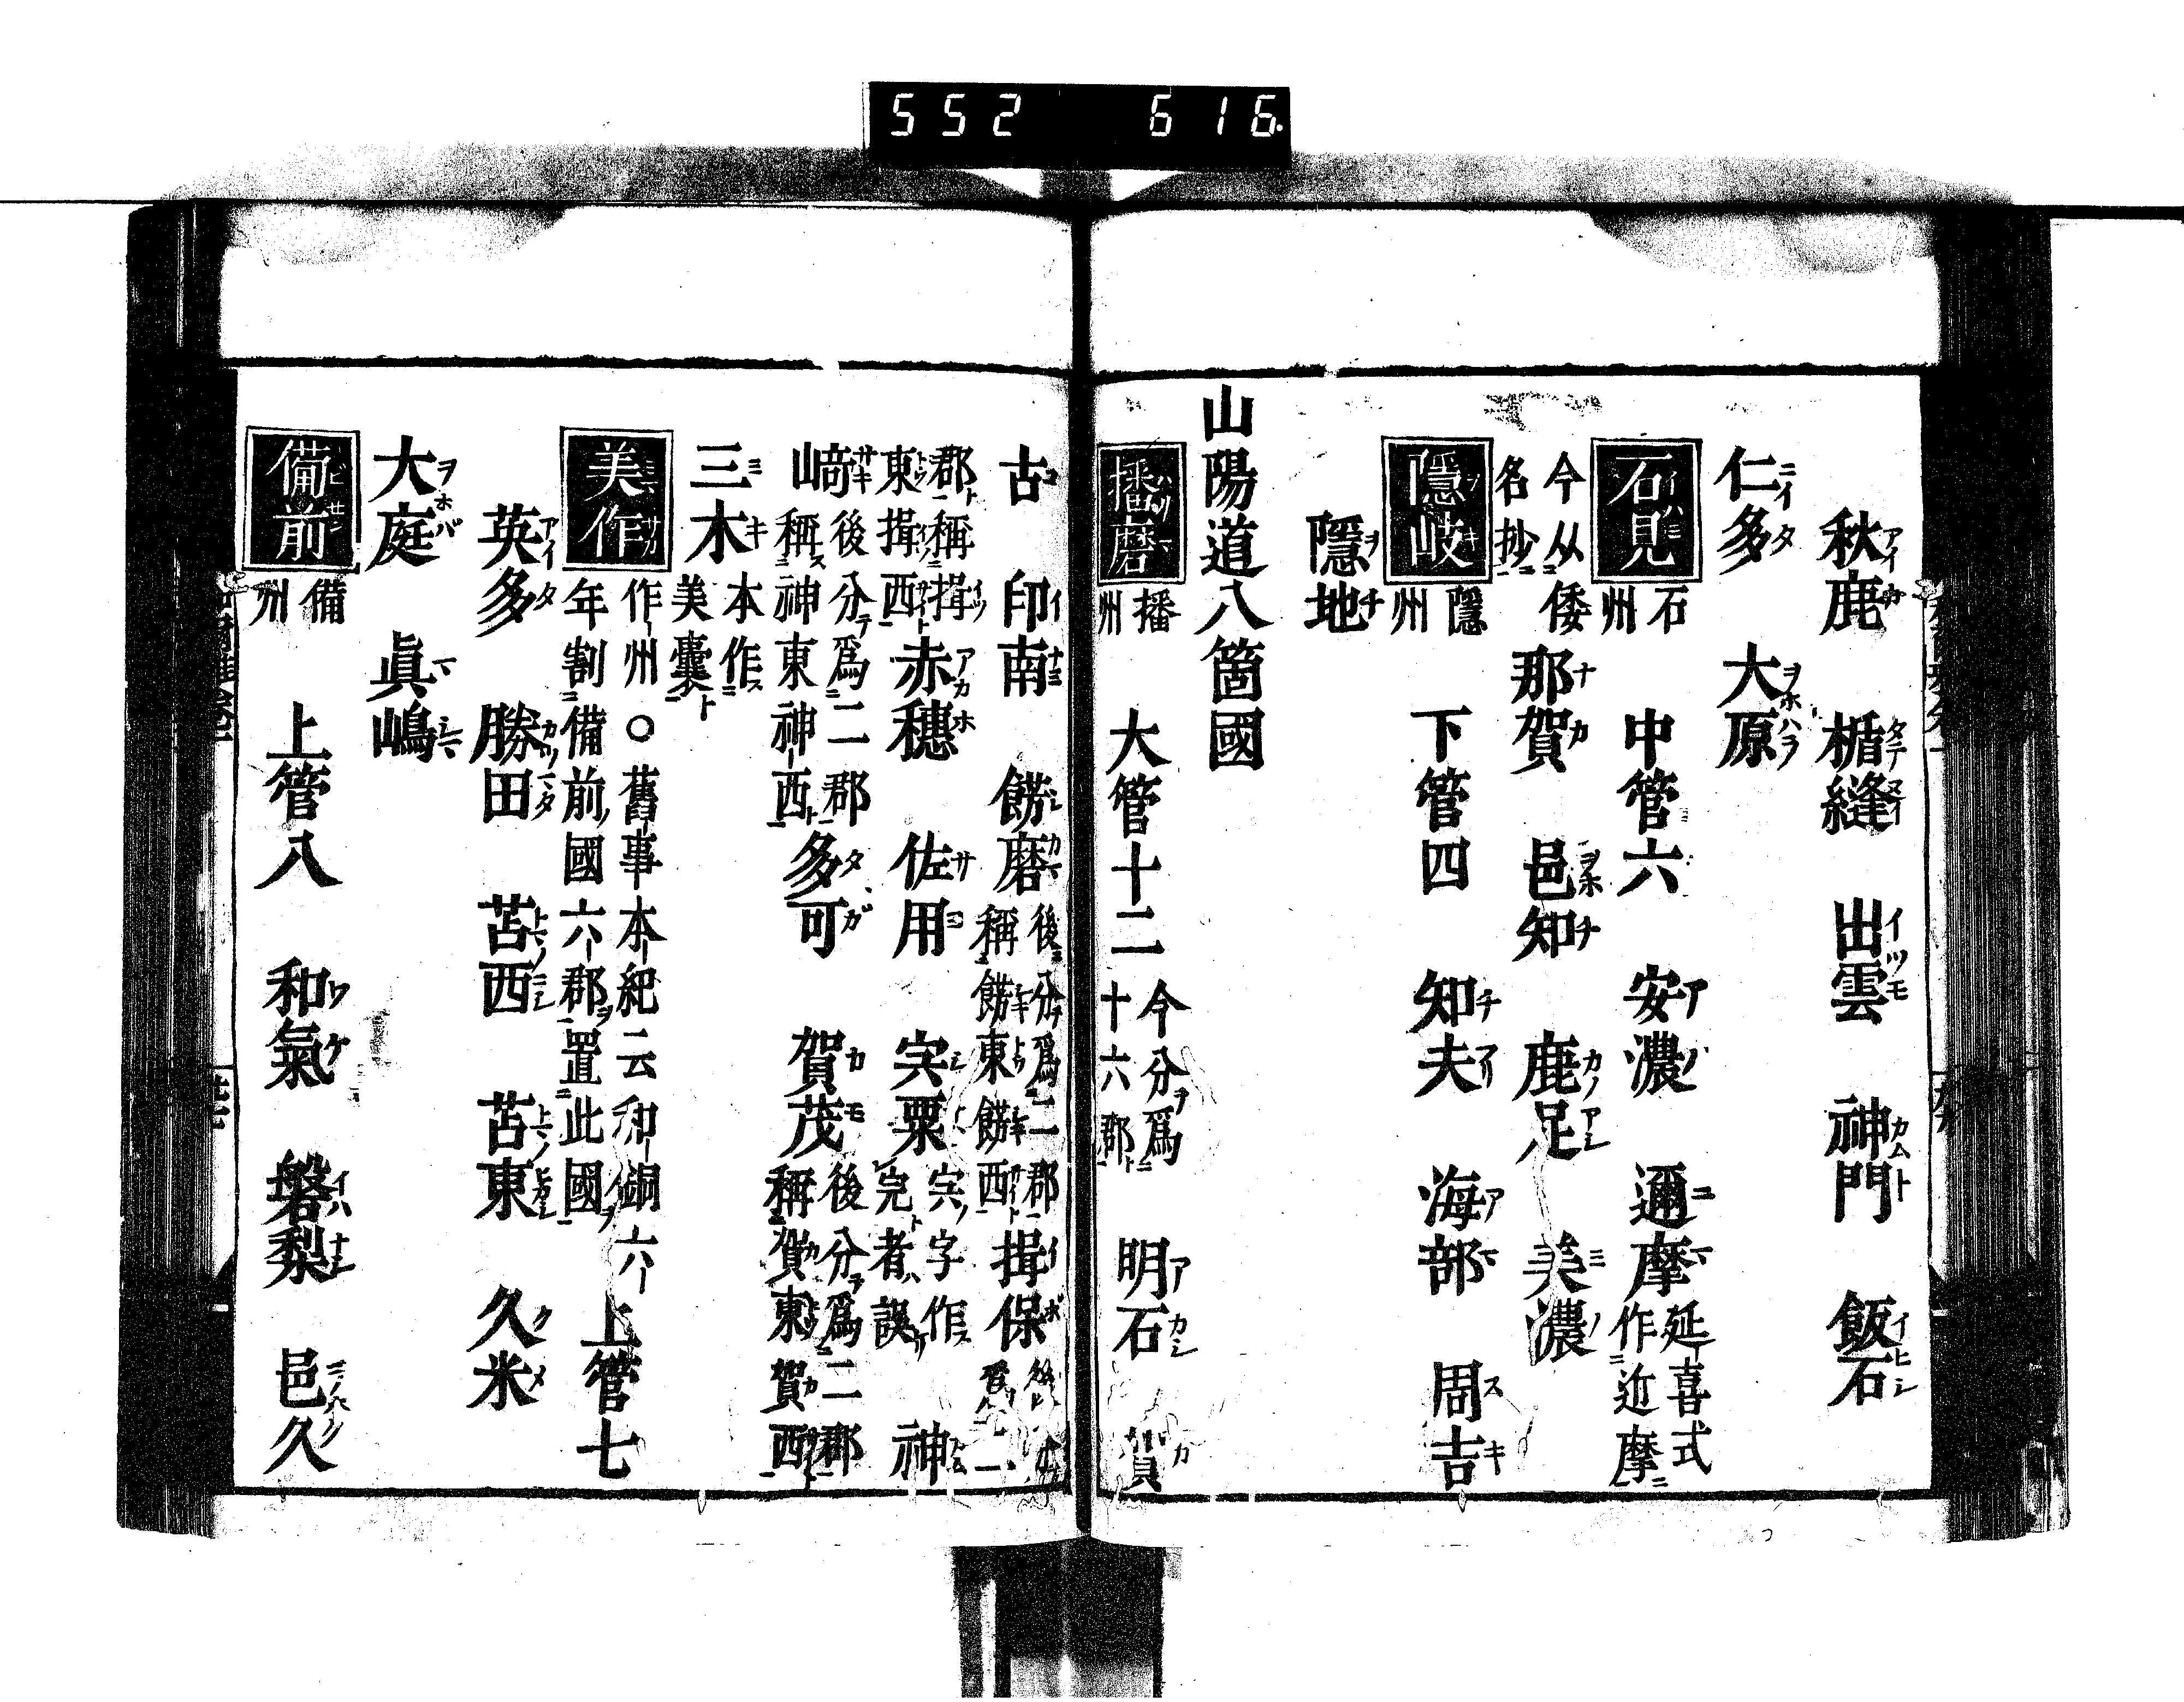 552 616
秋鹿 楯縫 出雲 神門 飯石
仁多 大原
石見 石州 中管六 安濃 邇摩 延喜式作近摩
今从倭名抄 那賀 邑知 鹿足 美濃
隱岐 隱州 下管四 知夫 海部 周吉
隱地
山陽道八箇國
播磨 播州 大管十二 今分爲十六郡 明石 賀
古 印南 餝磨 後分爲二郡稱餝東餝西 揖保
郡稱揖東揖西 赤穗 佐用 宍粟 宍字作完者誤 神
﨑 後分爲二郡稱神東神西 多可 賀茂 後分爲二郡稱賀東賀西
三木 本作美囊
美作 作州○舊事本紀云和銅六年割備前國六郡置此國 上管七
英多 勝田 苫西 苫東 久米
大庭 眞嶋
備前 備州 上管八 和氣 磐梨 邑久